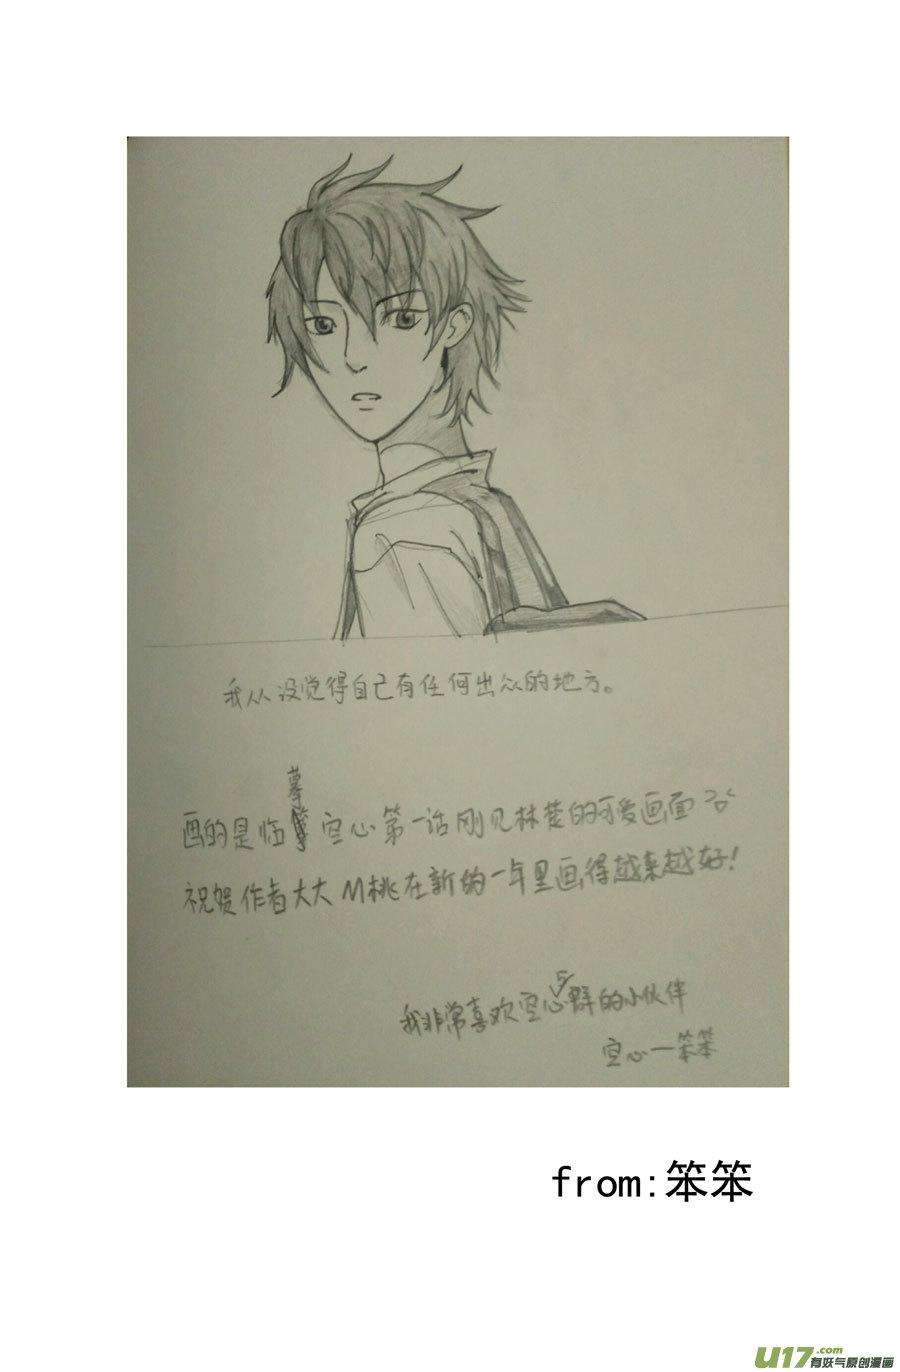 我从没觉得自己有任何出众的地方。
摹
画的是临 空心第一话刚见林楚的可爱画面
祝贺作者大大 M桃在新的一年里画得越来越好!
我非常喜欢空心 群的小伙伴
空心—笨笨
from:笨笨
U17.com
有妖气原创漫画